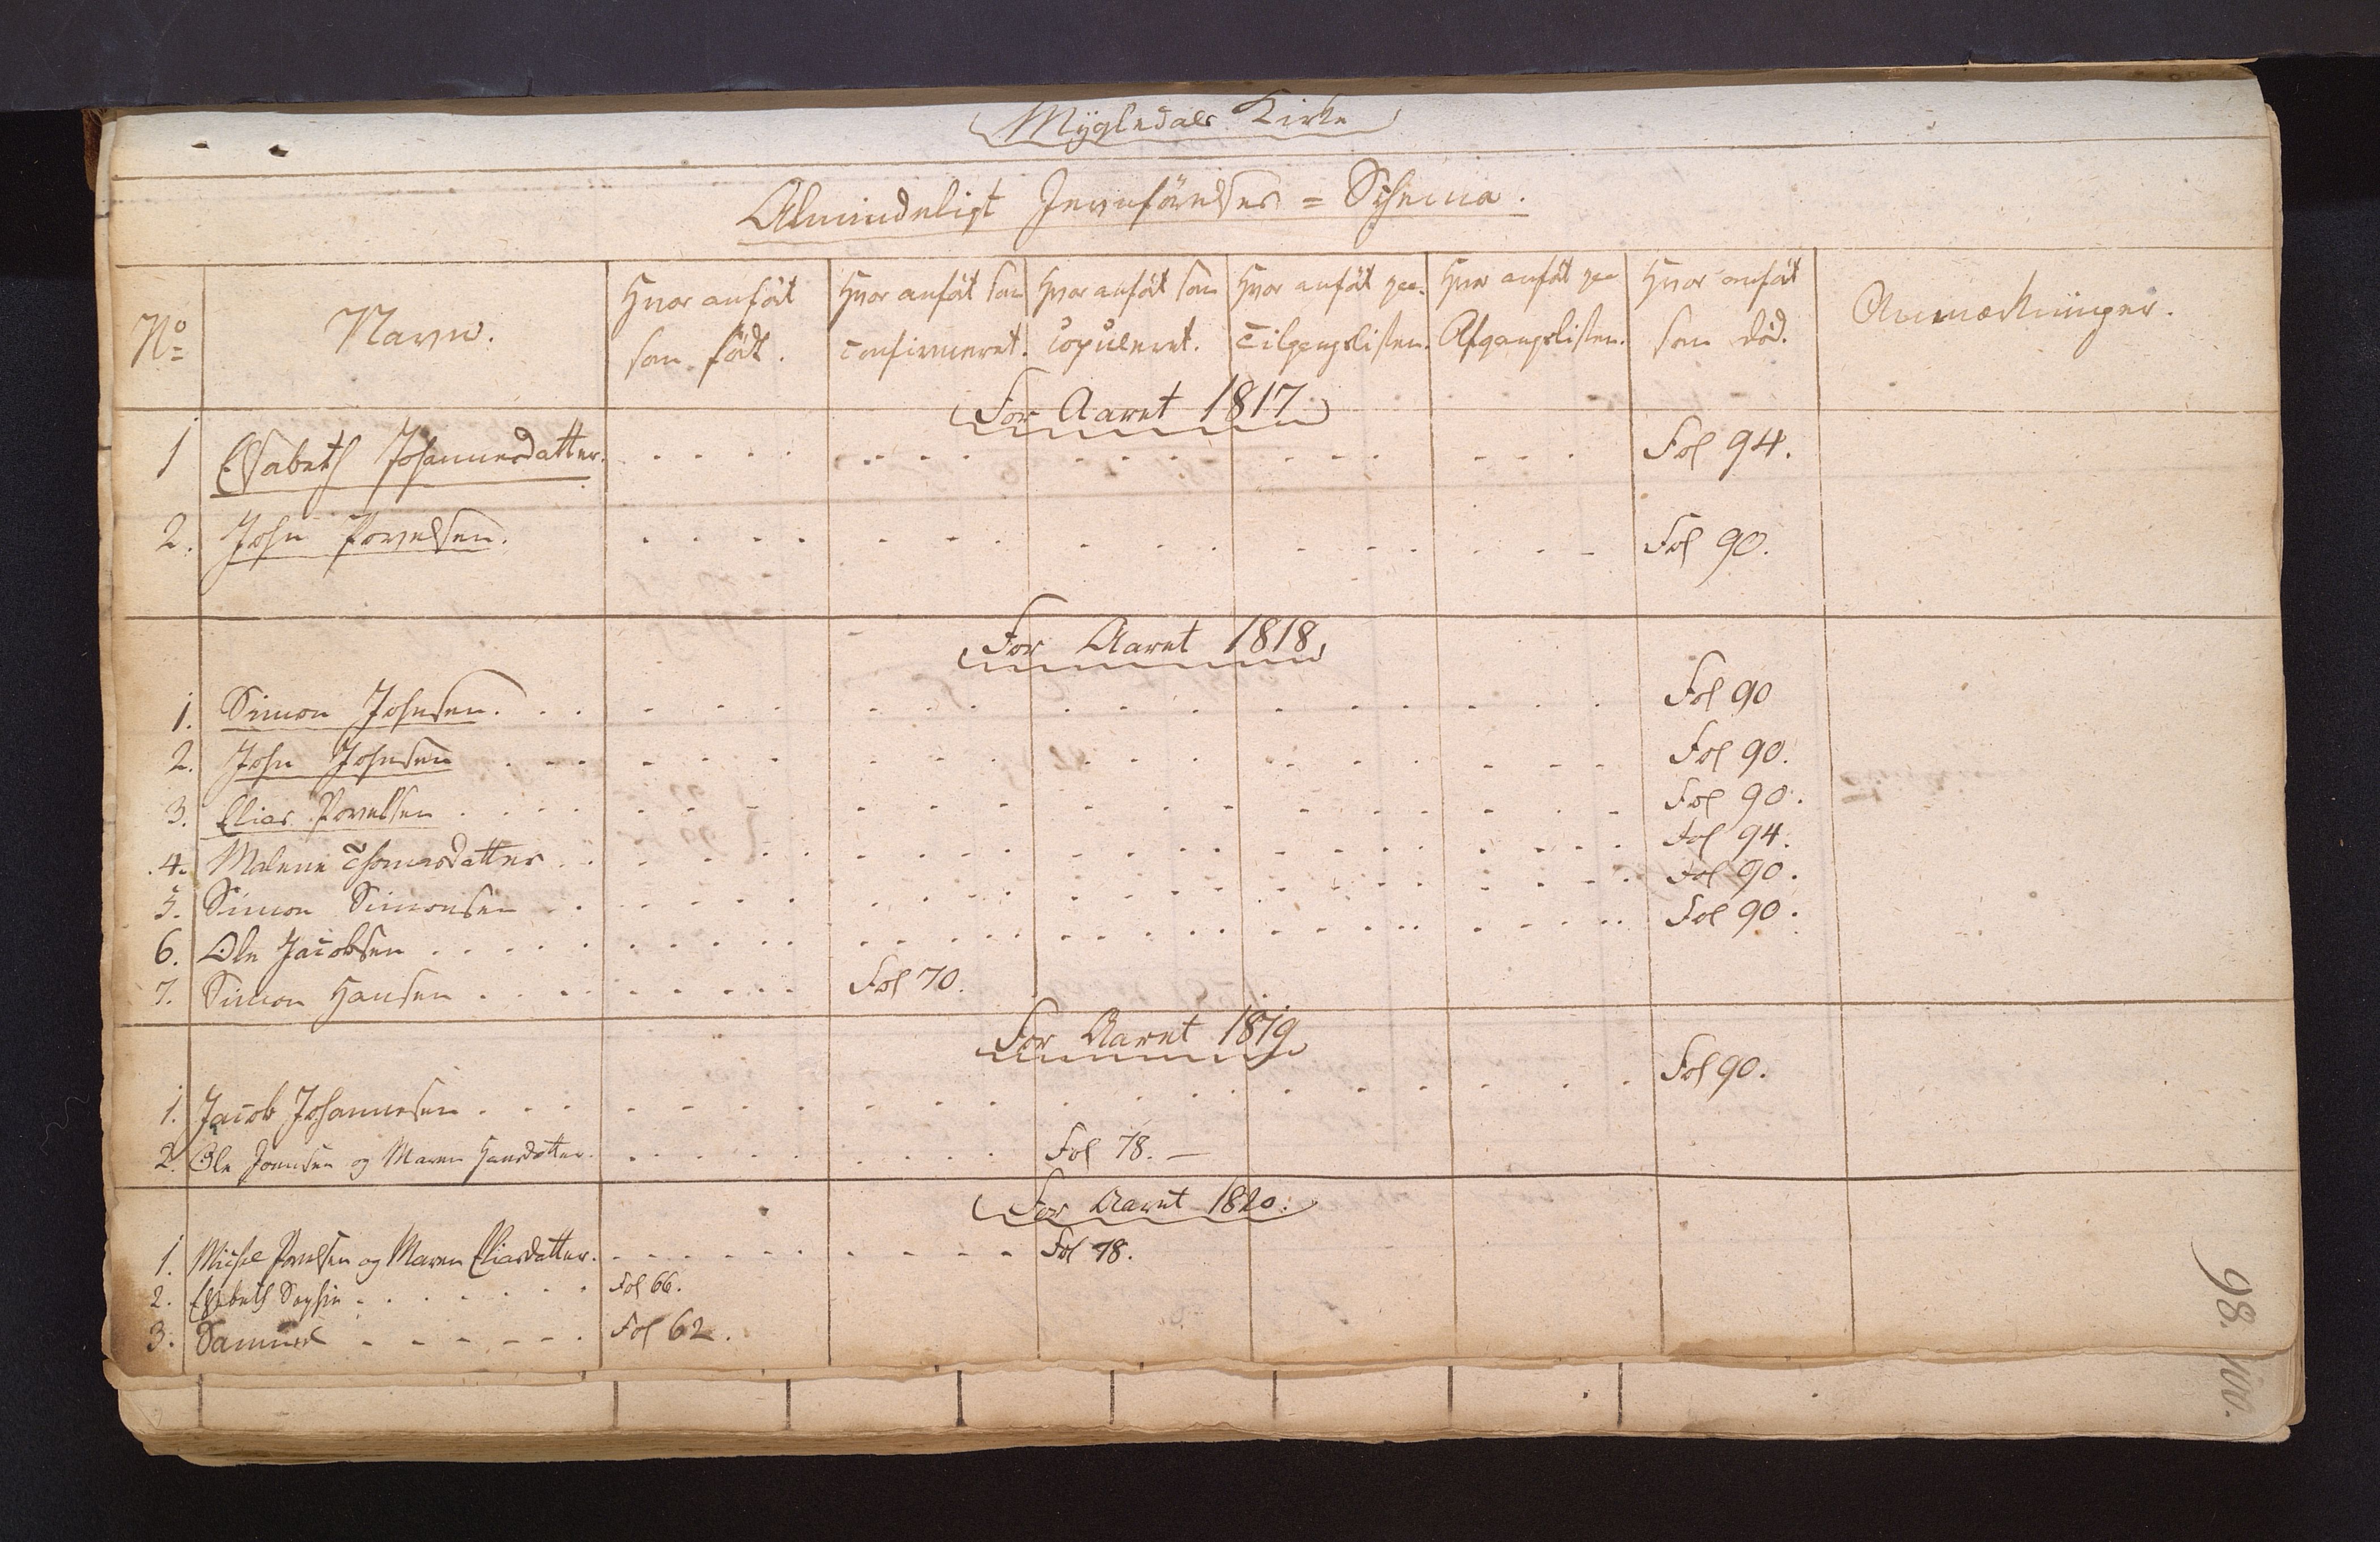 Mÿgledals Kirke
Almindeligt Jevnförelses = Schema.
No Navn. Hvor anfört som født. Hvor anfört som confirmeret. Hvor anfört som copuleret. Hvor anfört paa Tilgangslisten. Hvor anfört paa Afgangslisten. Hvor anfört som död. Anmærkninger.
For Aaret 1817
1 Elsabeth Johannesdatter. Fol 94.
2. John Povelsen. Fol 90.
For Aaret 1818
1. Simon Johnsen. Fol 90
2. John Johnsen Fol 90.
3. Elias Povelsen Fol 90.
4. Malene Thomasdatter Fol 94.
5. Simon Simonsen Fol 90.
6. Ole Jacobsen Fol 90.
7. Simon Hansen Fol 70.
For Aaret 1819
1. Jacob Johannesen Fol 90.
2. Ole Joensen og Maren Hansdatter. Fol 78. —
For Aaret 1820.
1. Michel Povelsen og Maren Eliasdatter. Fol 78.
2. Elsebeth Sophie Fol 66.
3. Samuel Fol 62.
98.
100.